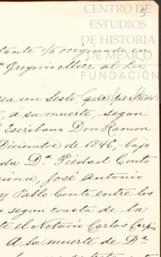 CENTRO DE
ESTUDIOS
DE HISTORIA
DE MÉXICO
FUNDACIÓN
5
tante y/o originado por
Dª Gregorio Mier
a su muerte, segun
Escribano Don Ramon
Diciembre de 1846, bajo
da Dª Piedad Couto
José Antonio
y Pablo Couto entre los
segun consta de la
te el Notario Carlos
A la muerte de Dª